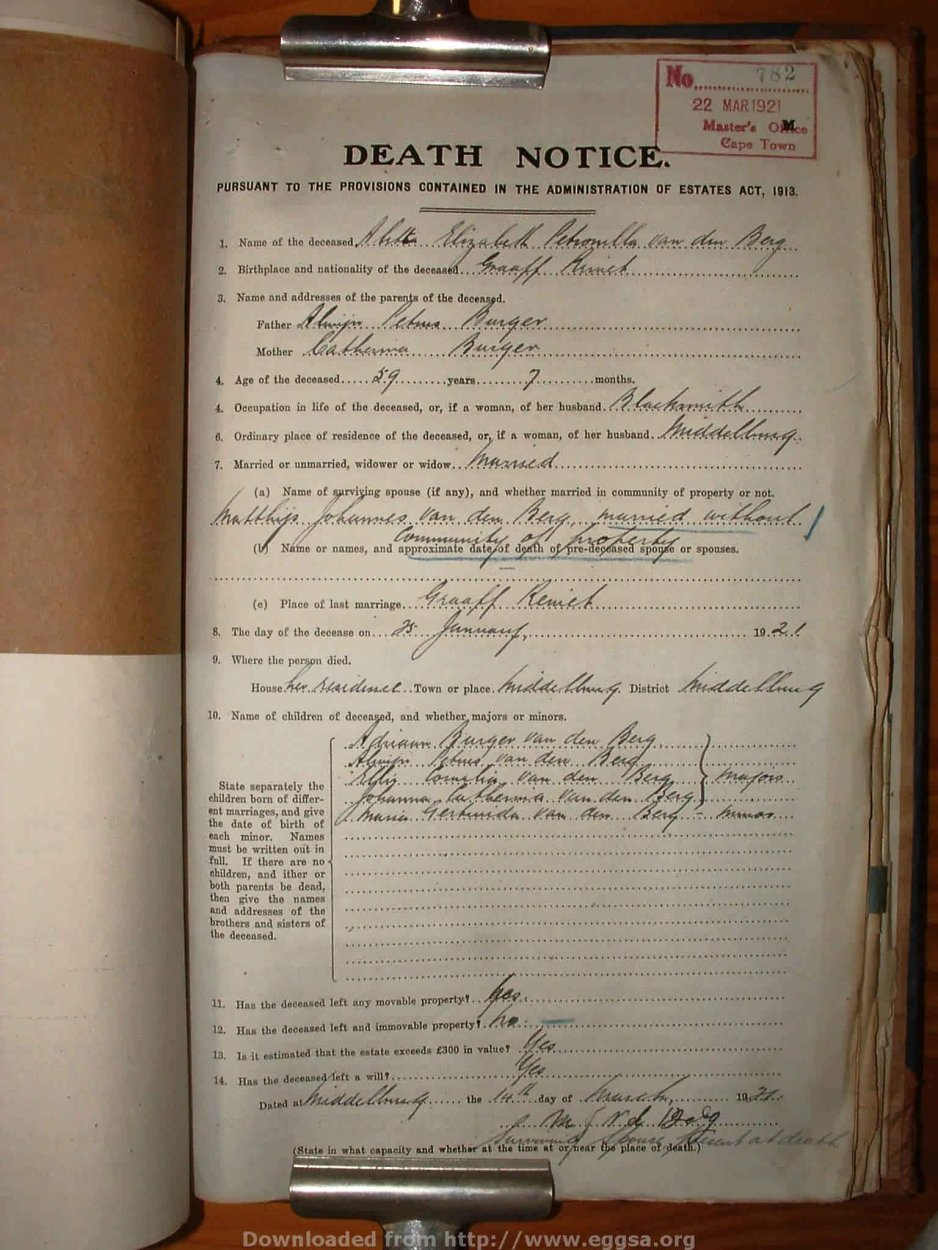 No. 782
22 MAR 1921
Master's Office
Cape Town
DEATH NOTICE.
PURSUANT TO THE PROVISIONS CONTAINED IN THE ADMINISTRATION OF ESTATES ACT, 1913.
1. Name of the deceased Elizabeth Petronilla van den Berg
2. Birthplace and nationality of the deceased Graaff Reinet
3. Name and addresses of the parents of the deceased.
Father Alwijn Petrus Burger
Mother Catherina Burger
4. Age of the deceased 59 years 7 months.
4. Occupation in life of the deceased, or, if a woman, of her husband. Blacksmith
6. Ordinary place of residence of the deceased, or, if a woman, of her husband. Middelburg
7. Married or unmarried, widower or widow. Married
(a) Name of surviving spouse (if any), and whether married in community of property or not.
Matthijs Johannes van den Berg, married without
Community of property
(b) Name or names, and approximate date of death of pre-deceased spouse or spouses.
(c) Place of last marriage. Graaff Reinet
8. The day of the decease on 25 January, 1921
9. Where the person died.
House her residence Town or place. Middelburg District Middelburg
10. Name of children of deceased, and whether majors or minors.
Adriaan Burger van den Berg
Alwijn Petrus van den Berg
Cornelia van den Berg majors
Johanna Catherina van den Berg
Maria Gertruida van den Berg - minor
State separately the
children born of differ-
ent marriages, and give
the date of birth of
each minor. Names
must be written out in
full. If there are no
children, and ither or
both parents be dead,
then give the names
and addresses of the
brothers and sisters of
the deceased.
11. Has the deceased left any movable property? Yes
12. Has the deceased left and immovable property? no
13. Is it estimated that the estate exceeds £300 in value? Yes
14. Has the deceased left a will? Yes
Dated at Middelburg the 14th day of March, 1921
M J v d Berg
Surviving Spouse present at death
(State in what capacity and whether at the time at or near the place of death.)
Downloaded from http://www.eggsa.org